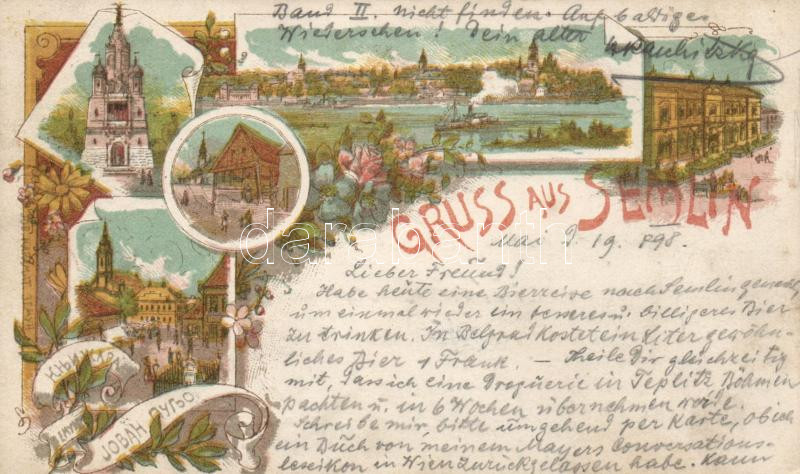 Band II. nicht finden. Auf baldiges
Wiedersehen! Dein alter
GRUSS AUS SEMLIN
Mai d. 19. 898.
Lieber Freund!
Habe heute eine Bierreise nach Semlin gemacht
um einmal wieder ein besseres u. billigeres Bier
zu trinken. In Belgrad kostet ein Liter gewöhn-
liches Bier 1 Frank. — Theile Dir gleichzeitig
mit, dass ich eine Droguerie in Teplitz Böhmen
pachten u. in 6 Wochen übernehmen werde.
Schreibe mir, bitte umgehend per Karte, ob ich
ein Buch von meinem Mayers Conversations-
lexikon in Wien zurückgelassen habe. Kann
КЊИЖАРА
ЈОВАН ПУЉО
darabanth